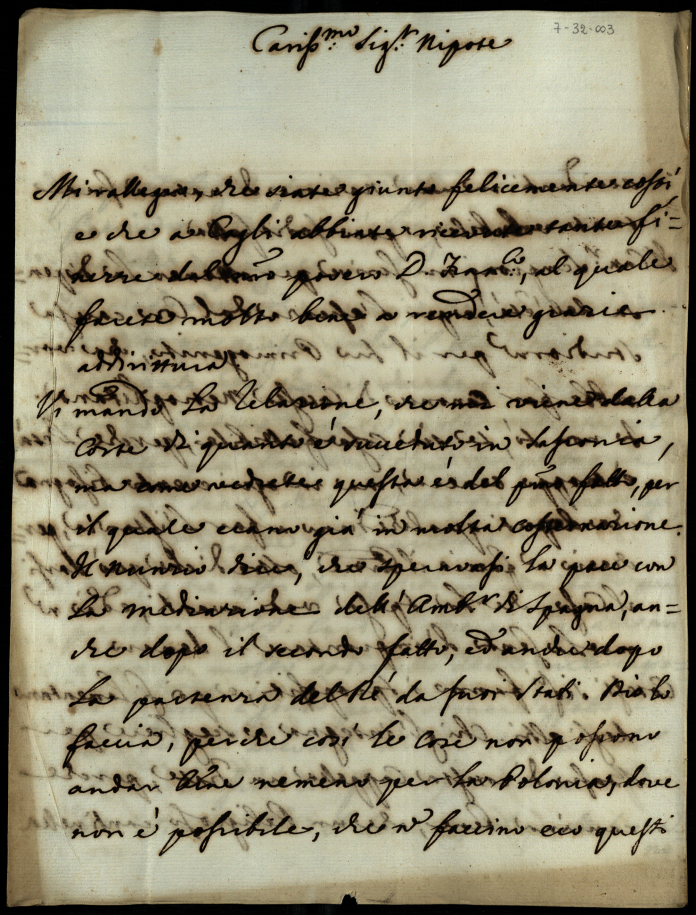 7-32-003
Cariss.mo Sig.r Nipote
Mi rallegro, che siate giunto felicemente costì
e che a Cagli abbiate ricevute tante fi=
nezze dal povero D. Fran.co, al quale
farete molto bene a rendere grazie
addirittura
Vi mando la Relazione, che mi viene dalla
Corte di quanto è succeduto in Sassonia,
ma come vedrete questa è del p.mo fatto, per
il quale erano già in molta costernazione.
Il Nunzio dice, che speravasi la pace con
la mediazione dell'Amb.r di Spagna, an=
che dopo il secondo fatto, ed anche dopo
la partenza del Rè da suoi Stati. Dio lo
faccia, perche così le cose non possono
andar bene nemeno per la Polonia, dove
non è possibile, che n faccino eco questi